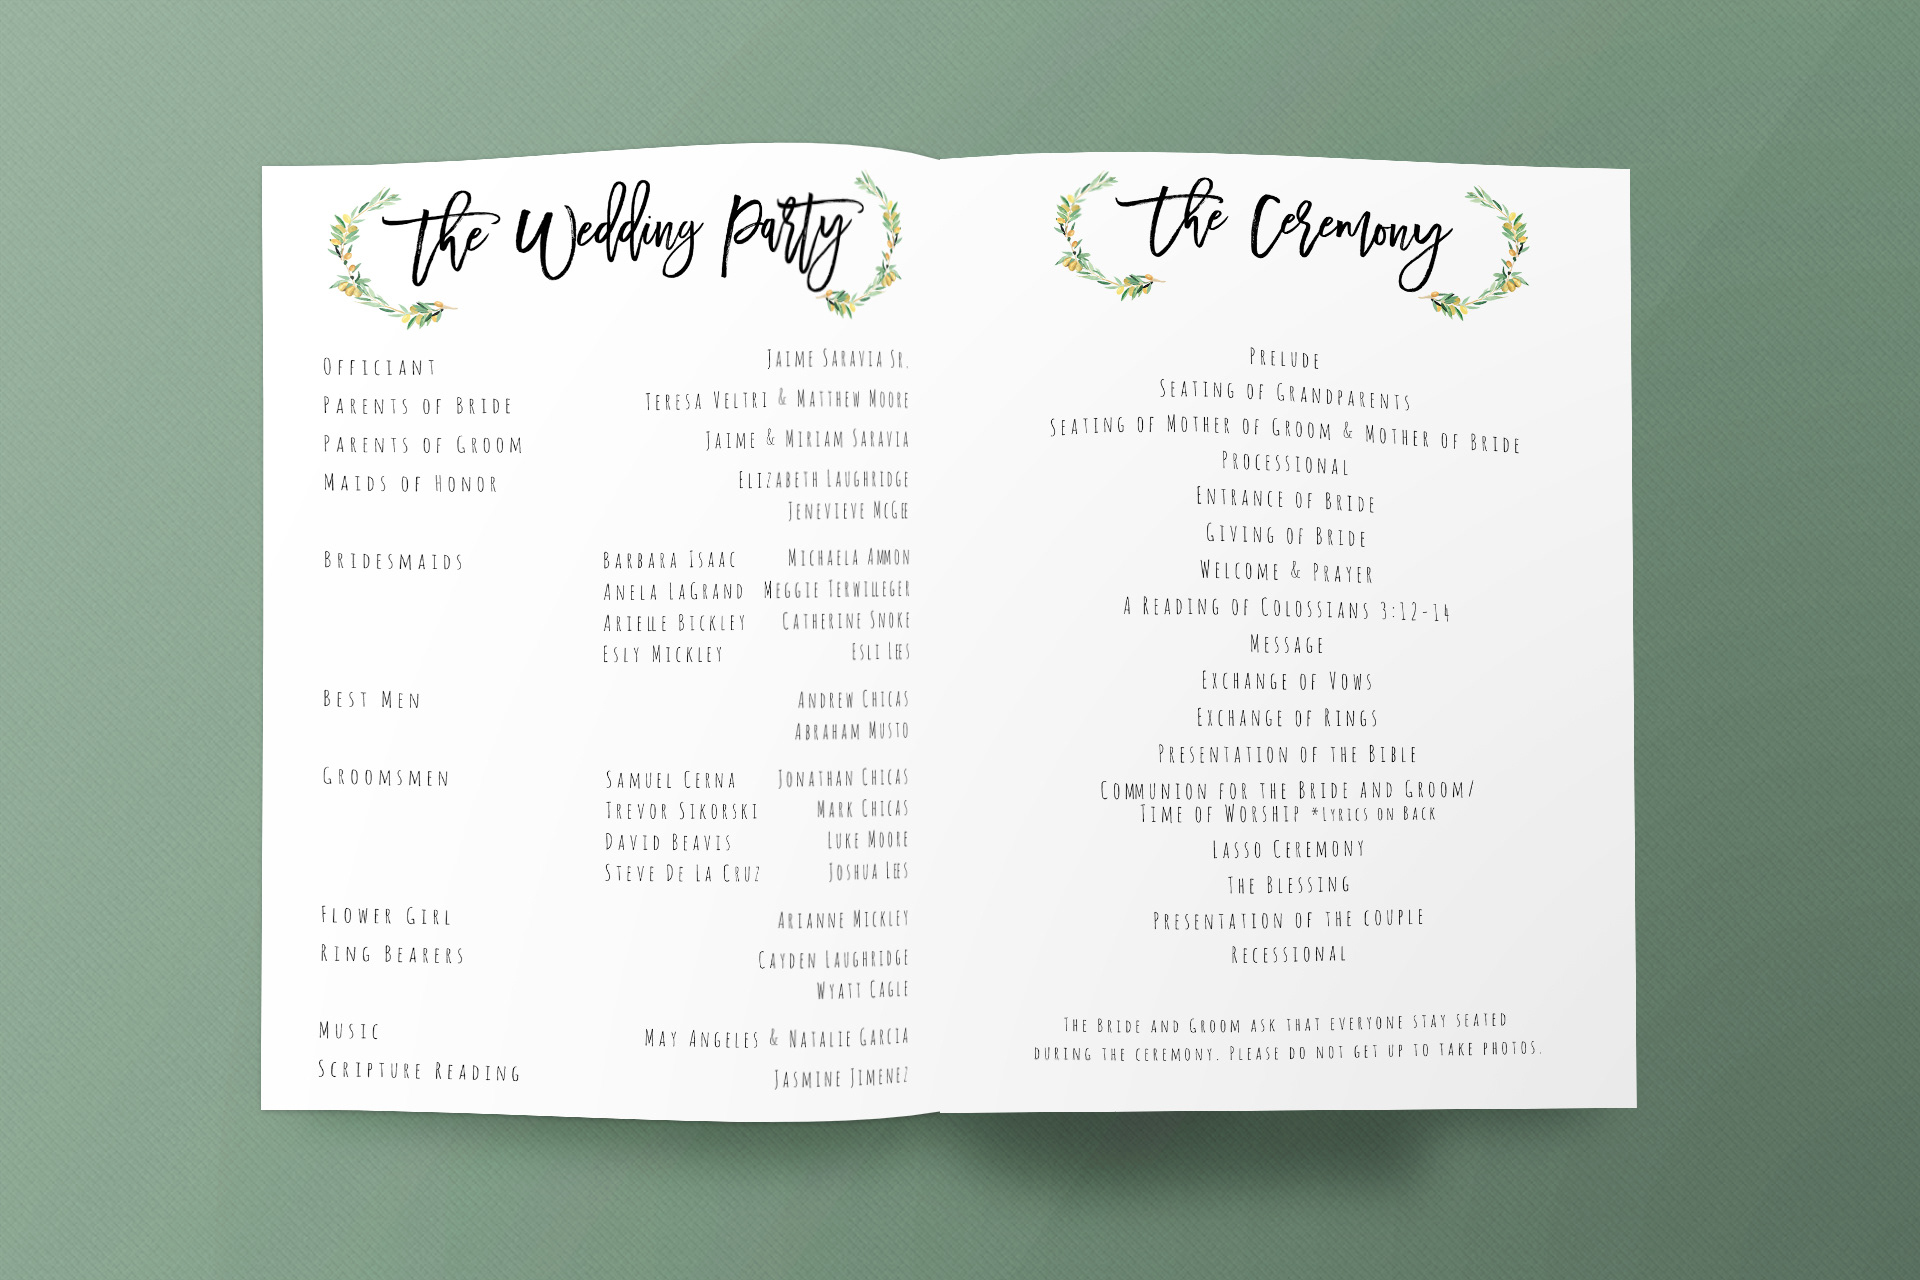 The Wedding Party
Officiant Jaime Saravia Sr.
Parents of Bride Teresa Veltri & Matthew Moore
Parents of Groom Jaime & Miriam Saravia
Maids of Honor Elizabeth Laughridge
Jenevieve McGee
Bridesmaids Barbara Isaac Michaela Ammon
Anela LaGrand Meggie Terwilleger
Arielle Bickley Catherine Snoke
Esly Mickley Esli Lees
Best Men Andrew Chicas
Abraham Musto
Groomsmen Samuel Cerna Jonathan Chicas
Trevor Sikorski Mark Chicas
David Beavis Luke Moore
Steve De La Cruz Joshua Lees
Flower Girl Arianne Mickley
Ring Bearers Cayden Laughridge
Wyatt Cagle
Music May Angeles & Natalie Garcia
Scripture Reading Jasmine Jimenez
The Ceremony
Prelude
Seating of Grandparents
Seating of Mother of Groom & Mother of Bride
Processional
Entrance of Bride
Giving of Bride
Welcome & Prayer
A Reading of Colossians 3:12-14
Message
Exchange of Vows
Exchange of Rings
Presentation of the Bible
Communion for the Bride and Groom/
Time of Worship *Lyrics on Back
Lasso Ceremony
The Blessing
Presentation of the couple
Recessional
The Bride and Groom ask that everyone stay seated
during the ceremony. Please do not get up to take photos.